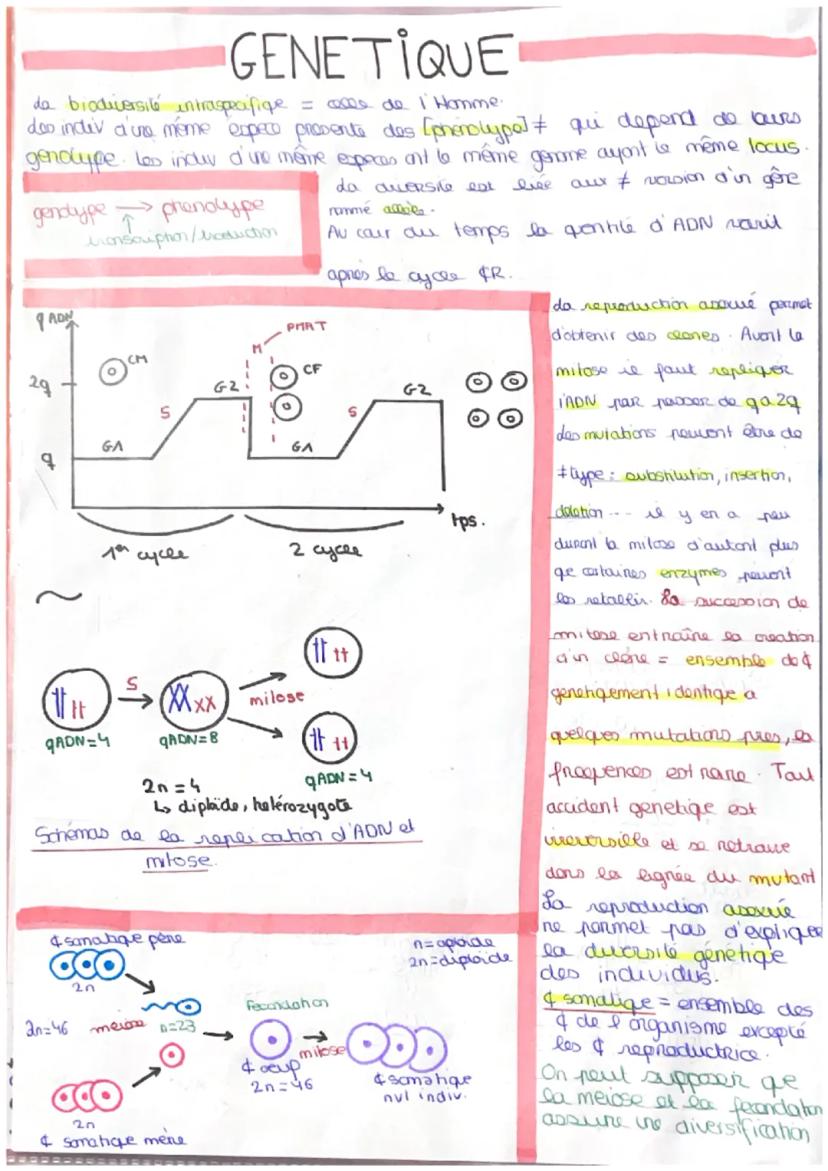 GENETIQUE
La biodiversité intraspécifique = celle de l'Homme.
Les indiv d'une même espece presente des [phénotype] ≠ qui depend de leurs
génotype. Les indiv d'une même especes ont le même genome ayant le même locus.
La diversité est liée aux ≠ version d'un gène
nommé
Au cour du temps la qentité d'ADN varie
apres le cycle ¢R.
genotype → phenotype
↑
transcription/traduction
q ADN
2q
q
CM
G1
S
G2
M
PMAT
CF
G1
S
G2
tps.
1er cycle
2 cycle
S
milose
qADN=4
qADN=8
qADN=4
2n = 4
↳ diploide, hetérozygote
Schémas de la replication d'ADN et
mitose.
La reproduction asexué permet
d'obtenir des clones. Avant la
mitose il faut repliquer
l'ADN par passer de q a 2q
des mutations peuvent être de
≠ type : substitution, insertion,
deletion... il y en a peu
durant la mitose d'autant plus
qe certaines enzymes peuvent
les retablir. La succession de
mitose entraîne la creation
d'un clone = ensemble de ¢
genetiqement identiqe a
quelques mutations pres, la
frequences est rare. Tout
accident genetiqe est
irreversible et se retrouve
dans la lignée du mutant
La reproduction asexué
ne permet pas d'expliquer
la diversité génétique
des individus.
¢ somatique = ensemble des
¢ de l'organisme excepté
les ¢ reproductrice.
On peut supposer que
la meiose et la fecondation
assure une diversification
¢ somatique père
2n
n = aploide
2n = diploide
2n=46
meiose
n=23
Fecondation
¢ oeuf
2n = 46
mitose
¢ somatique
nvl indiv.
2n
¢ somatique mère